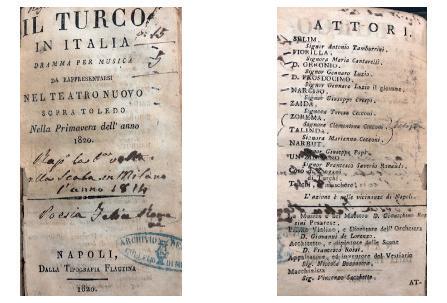 IL TURCO
IN ITALIA
DRAMMA PER MUSICA
DA RAPPRESENTARSI
NEL TEATRO NUOVO
SOPRA TOLEDO
Nella Primavera dell' anno
1820.
in Milano
l'anno 1814
Poesia Felice
NAPOLI,
DALLA TIPOGRAFIA FLAUTINA
1820.
ARCHIVIO
ATTORI.
SELIM.
Signor Antonio Tamburrini.
FIORILLA.
Signora Maria Cantarelli.
D. GERONIO.
Signor Gennaro Luzio.
D. PROSDOCIMO.
Signor Gennaro Luzio il giovane.
NARCISO.
Signor Giuseppe
ZAIDA.
Signora Teresa Cecconi.
ZOREMA.
Signora Clementina Cecconi.
TALINDA.
Signora Marianna Cecconi.
NARBUT.
Signor Giuseppe Papi.
Signor Francesco Saverio
Coro di
di Turchi
maschere.
L'azione è nelle vicinanze di Napoli.
Musica è del Maestro D. Gioacchino Ros-
sini Pesarese.
Primo Violino, e Direttore dell' Orchestra
D. Giovanni de Lorenzo.
Architetto, e dipintore delle Scene
D. Francesco Rossi.
Appaltatore, ed inventore del Vestiario
Sig. Nicola
Macchinista
Sig. Vincenzo Sacchetti.
AT-